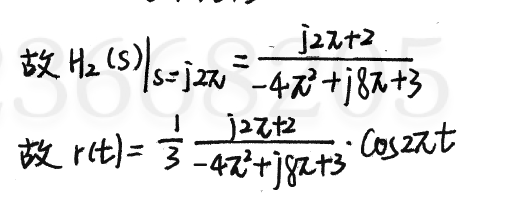 故 H₂(s)|s=j2π = (j2π+2)/(-4π²+j8π+3)
故 r(t) = 1/3 (j2π+2)/(-4π²+j8π+3) · cos2πt